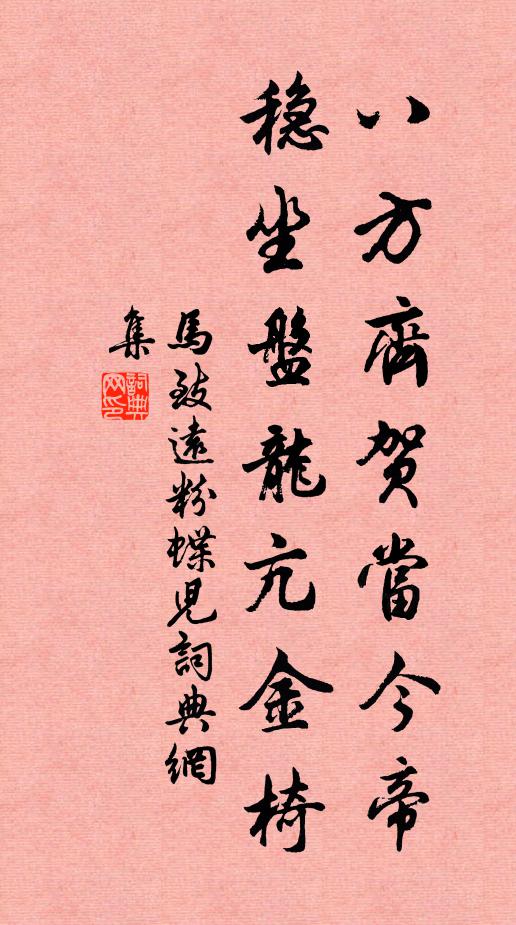 八方齊賀當今帝
穩坐盤龍亢金椅
馬致遠粉蝶兒詞典網
集
詞典
網印